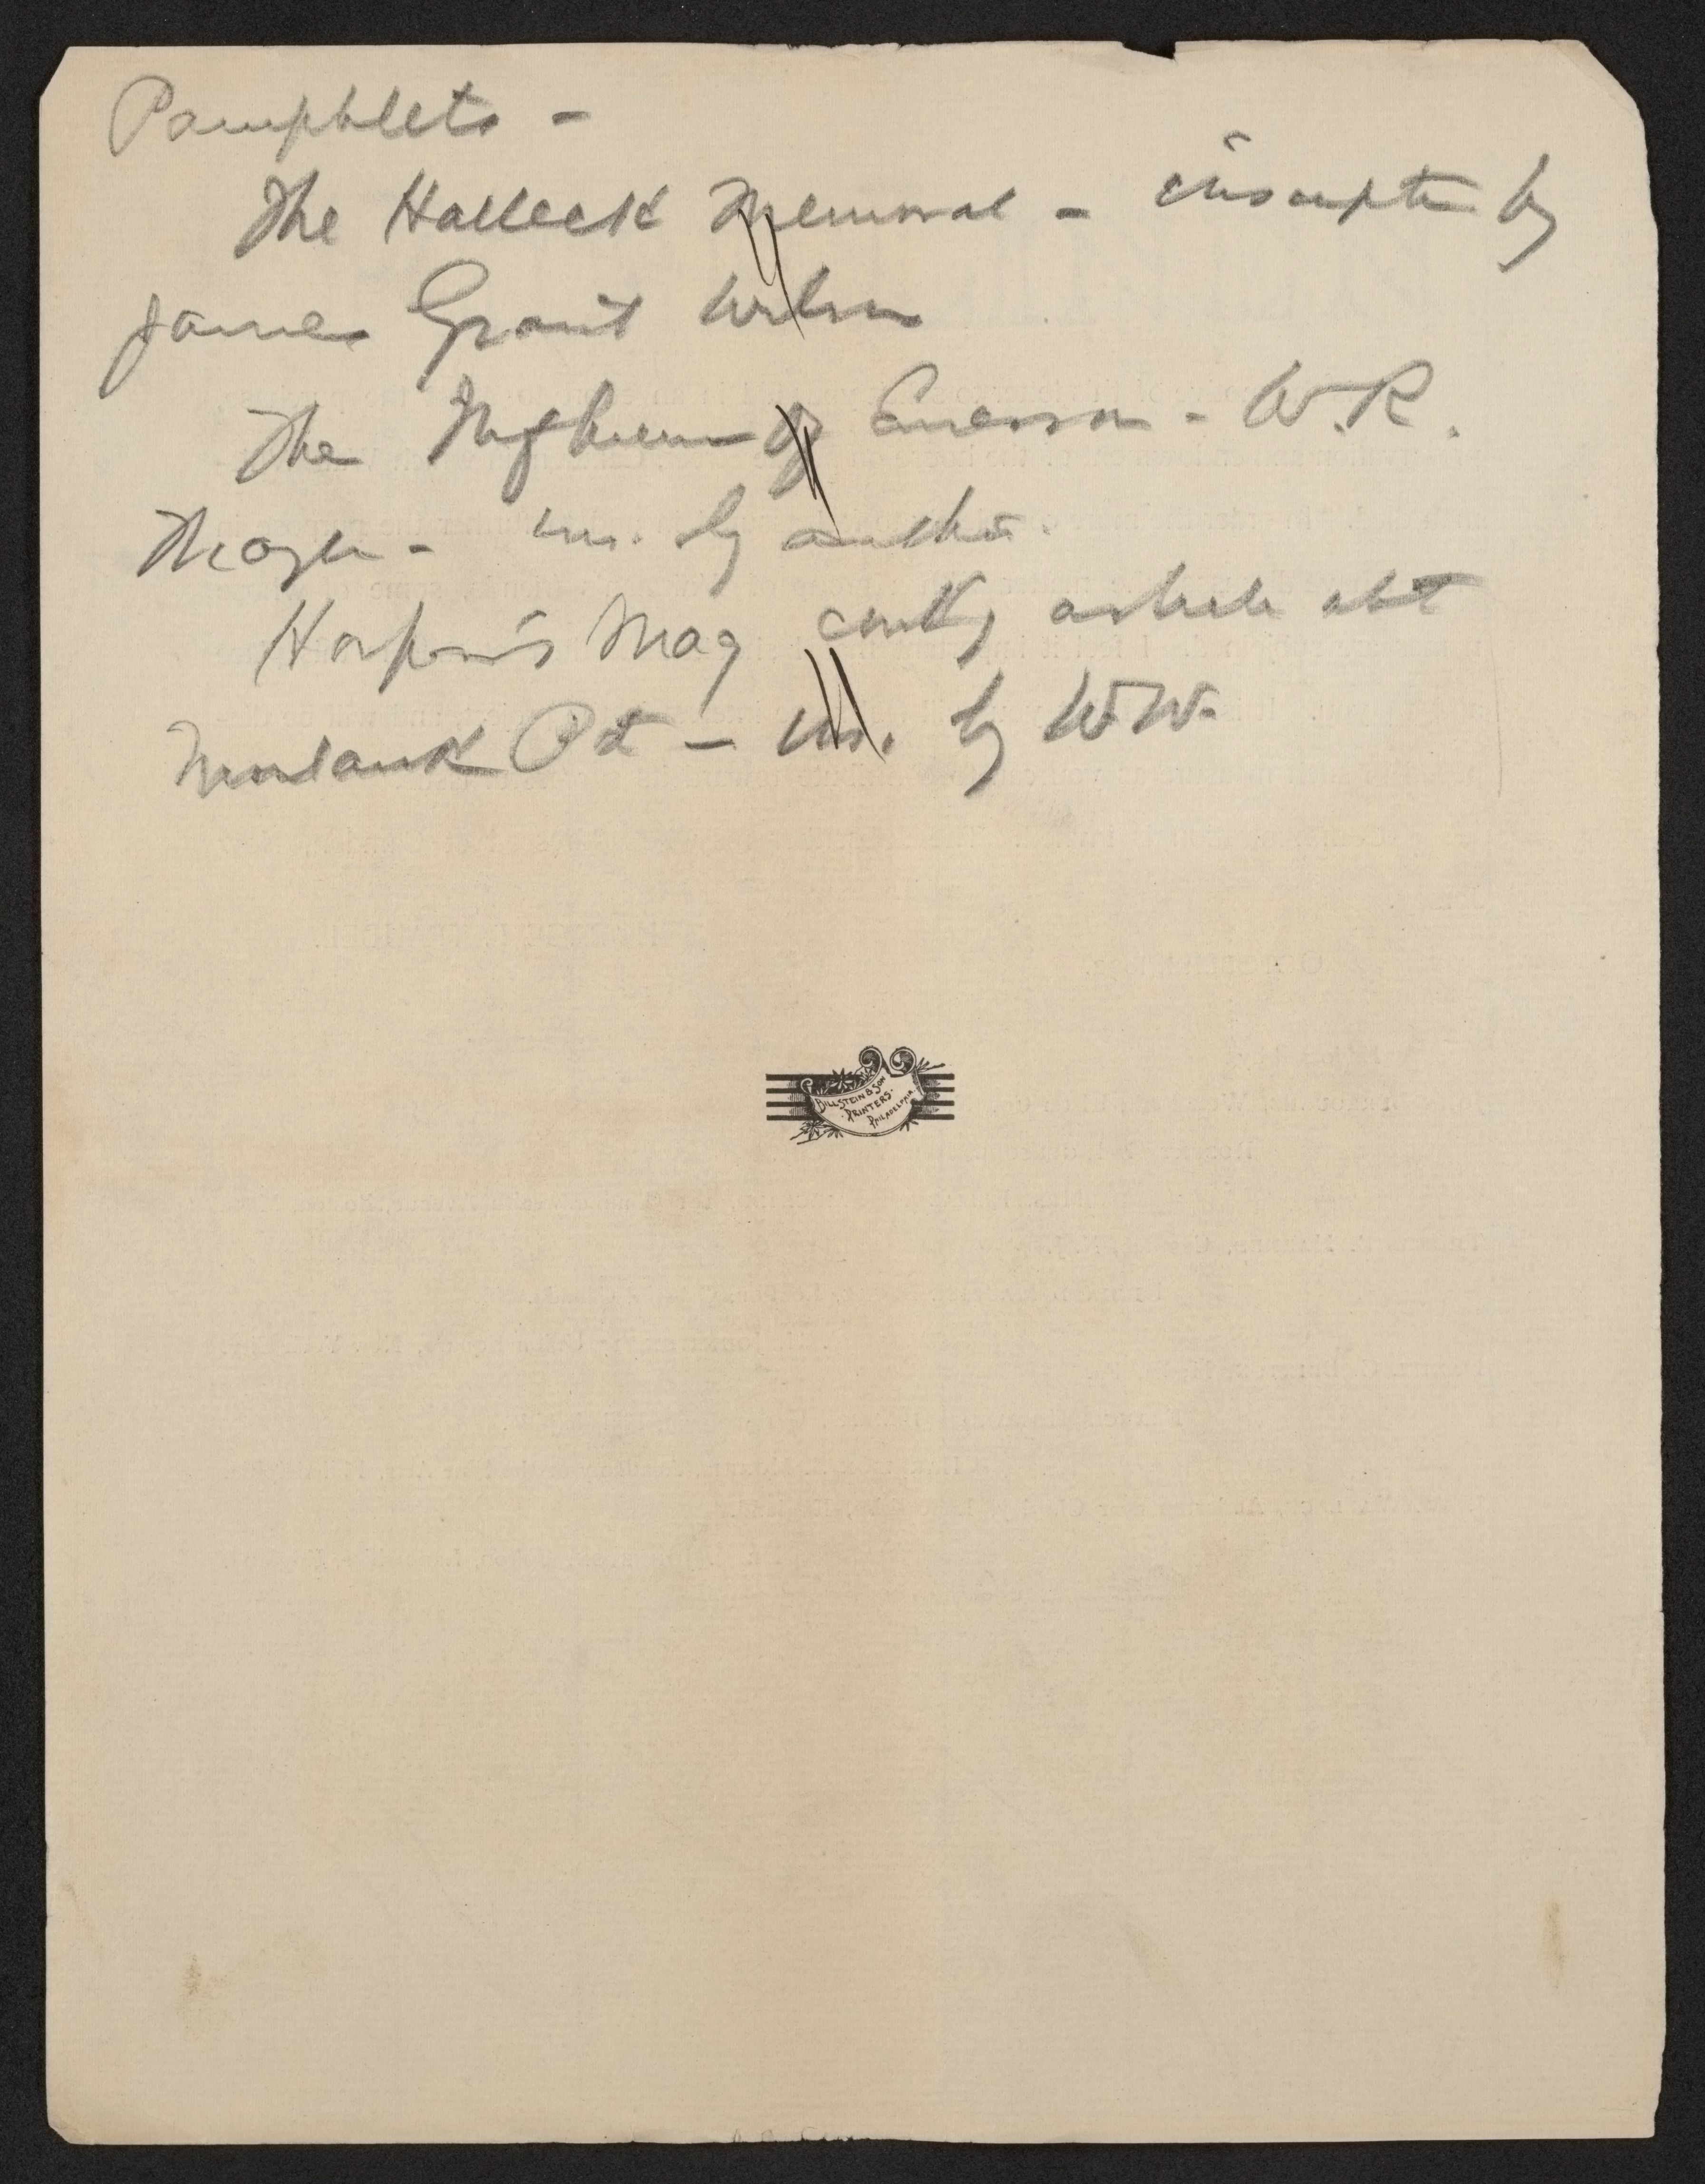 Pamphlets -
The Halleck Memorial - inscription by
James Grant Wilson
The Influence of Emerson - W. R.
Thayer - ins. by author.
Harper's Mag contg article abt
Montauk Pt - ins. by W.W.
BILLSTEIN & SON
PRINTERS.
PHILADELPHIA